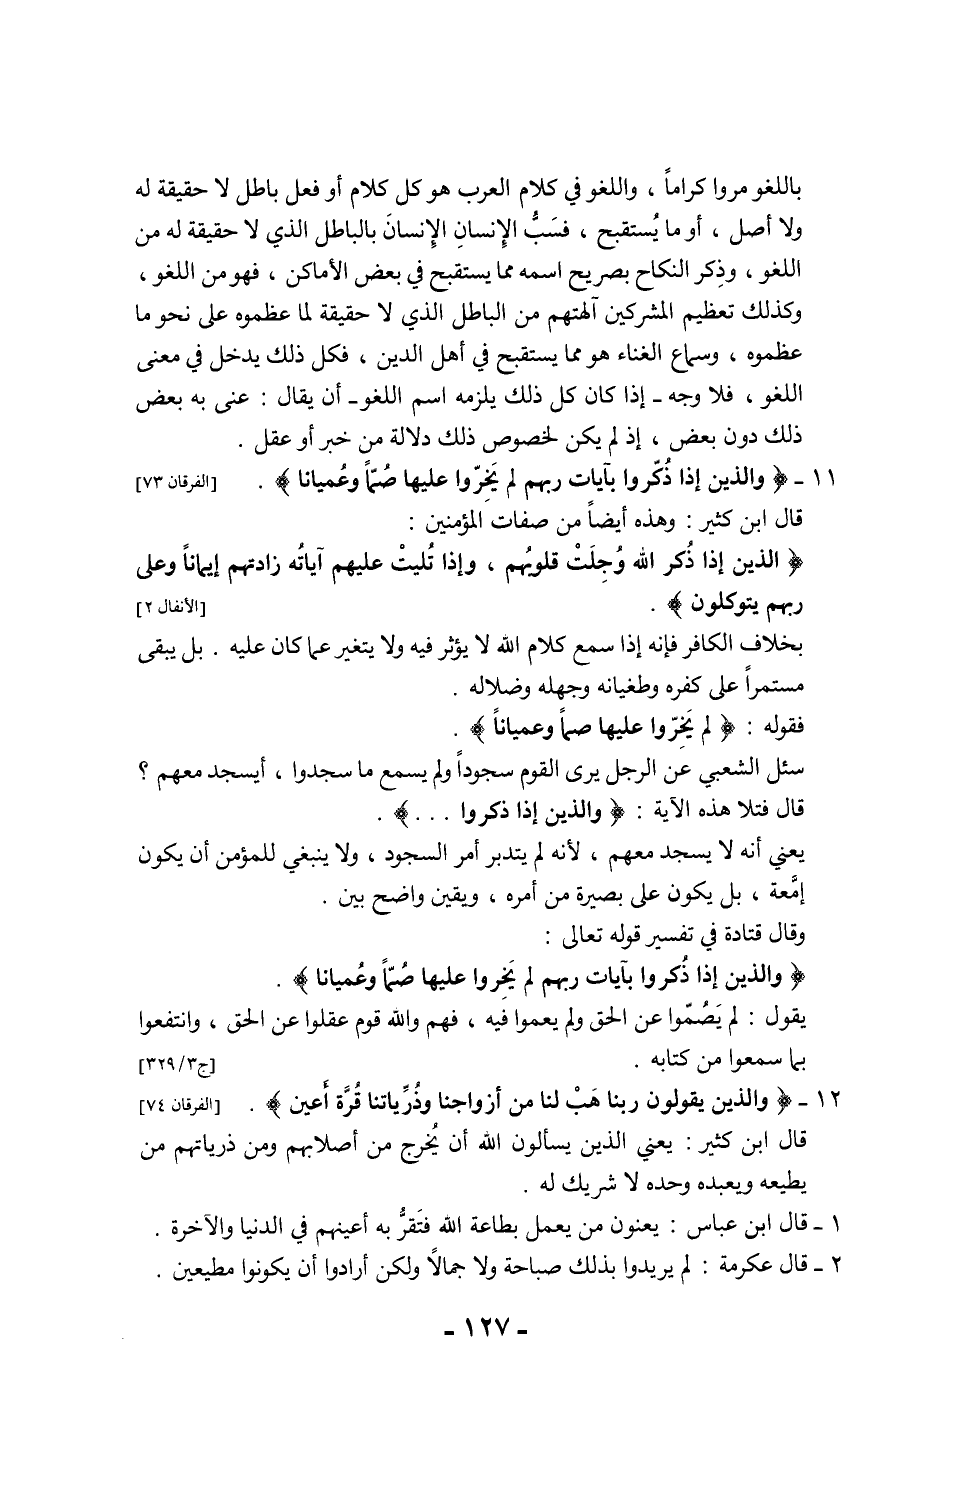 باللغو مروا كراماً ، واللغو في كلام العرب هو كل كلام أو فعل باطل لا حقيقة له
ولا أصل ، أو ما يُستقبح ، فسَبُّ الإنسانِ الإنسانَ بالباطل الذي لا حقيقة له من
اللغو ، وذِكر النكاح بصريح اسمه مما يستقبح في بعض الأماكن ، فهو من اللغو ،
وكذلك تعظيم المشركين آلهتهم من الباطل الذي لا حقيقة لما عظموه على نحو ما
عظموه ، وسماع الغناء هو مما يستقبح في أهل الدين ، فكل ذلك يدخل في معنى
اللغو ، فلا وجه ـ إذا كان كل ذلك يلزمه اسم اللغو ـ أن يقال : عنى به بعض
ذلك دون بعض ، إذ لم يكن لخصوص ذلك دلالة من خبر أو عقل .
١١ ـ ﴿ والذين إذا ذُكّروا بآيات ربهم لم يَخِرّوا عليها صُمّاً وعُميانا ﴾ . [الفرقان ٧٣]
قال ابن كثير : وهذه أيضاً من صفات المؤمنين :
﴿ الذين إذا ذُكر الله وُجِلَتْ قلوبُهم ، وإذا تُليتْ عليهم آياتُه زادتهم إيماناً وعلى
ربهم يتوكلون ﴾ . [الأنفال ٢]
بخلاف الكافر فإنه إذا سمع كلام الله لا يؤثر فيه ولا يتغير عما كان عليه . بل يبقى
مستمراً على كفره وطغيانه وجهله وضلاله .
فقوله : ﴿ لم يَخِرّوا عليها صماً وعمياناً ﴾ .
سئل الشعبي عن الرجل يرى القوم سجوداً ولم يسمع ما سجدوا ، أيسجد معهم ؟
قال فتلا هذه الآية : ﴿ والذين إذا ذكروا . . . ﴾ .
يعني أنه لا يسجد معهم ، لأنه لم يتدبر أمر السجود ، ولا ينبغي للمؤمن أن يكون
إمَّعة ، بل يكون على بصيرة من أمره ، ويقين واضح بين .
وقال قتادة في تفسير قوله تعالى :
﴿ والذين إذا ذُكروا بآيات ربهم لم يَخِروا عليها صُمّاً وعُميانا ﴾ .
يقول : لم يَصُمّوا عن الحق ولم يعموا فيه ، فهم والله قوم عقلوا عن الحق ، وانتفعوا
بما سمعوا من كتابه . [ج٣/٣٢٩]
١٢ ـ ﴿ والذين يقولون ربنا هَبْ لنا من أزواجنا وذُرِّياتنا قُرَّة أَعين ﴾ . [الفرقان ٧٤]
قال ابن كثير : يعني الذين يسألون الله أن يُخرج من أصلابهم ومن ذرياتهم من
يطيعه ويعبده وحده لا شريك له .
١ ـ قال ابن عباس : يعنون من يعمل بطاعة الله فتَقرُّ به أعينهم في الدنيا والآخرة .
٢ ـ قال عكرمة : لم يريدوا بذلك صباحة ولا جمالًا ولكن أرادوا أن يكونوا مطيعين .
ـ ١٢٧ ـ